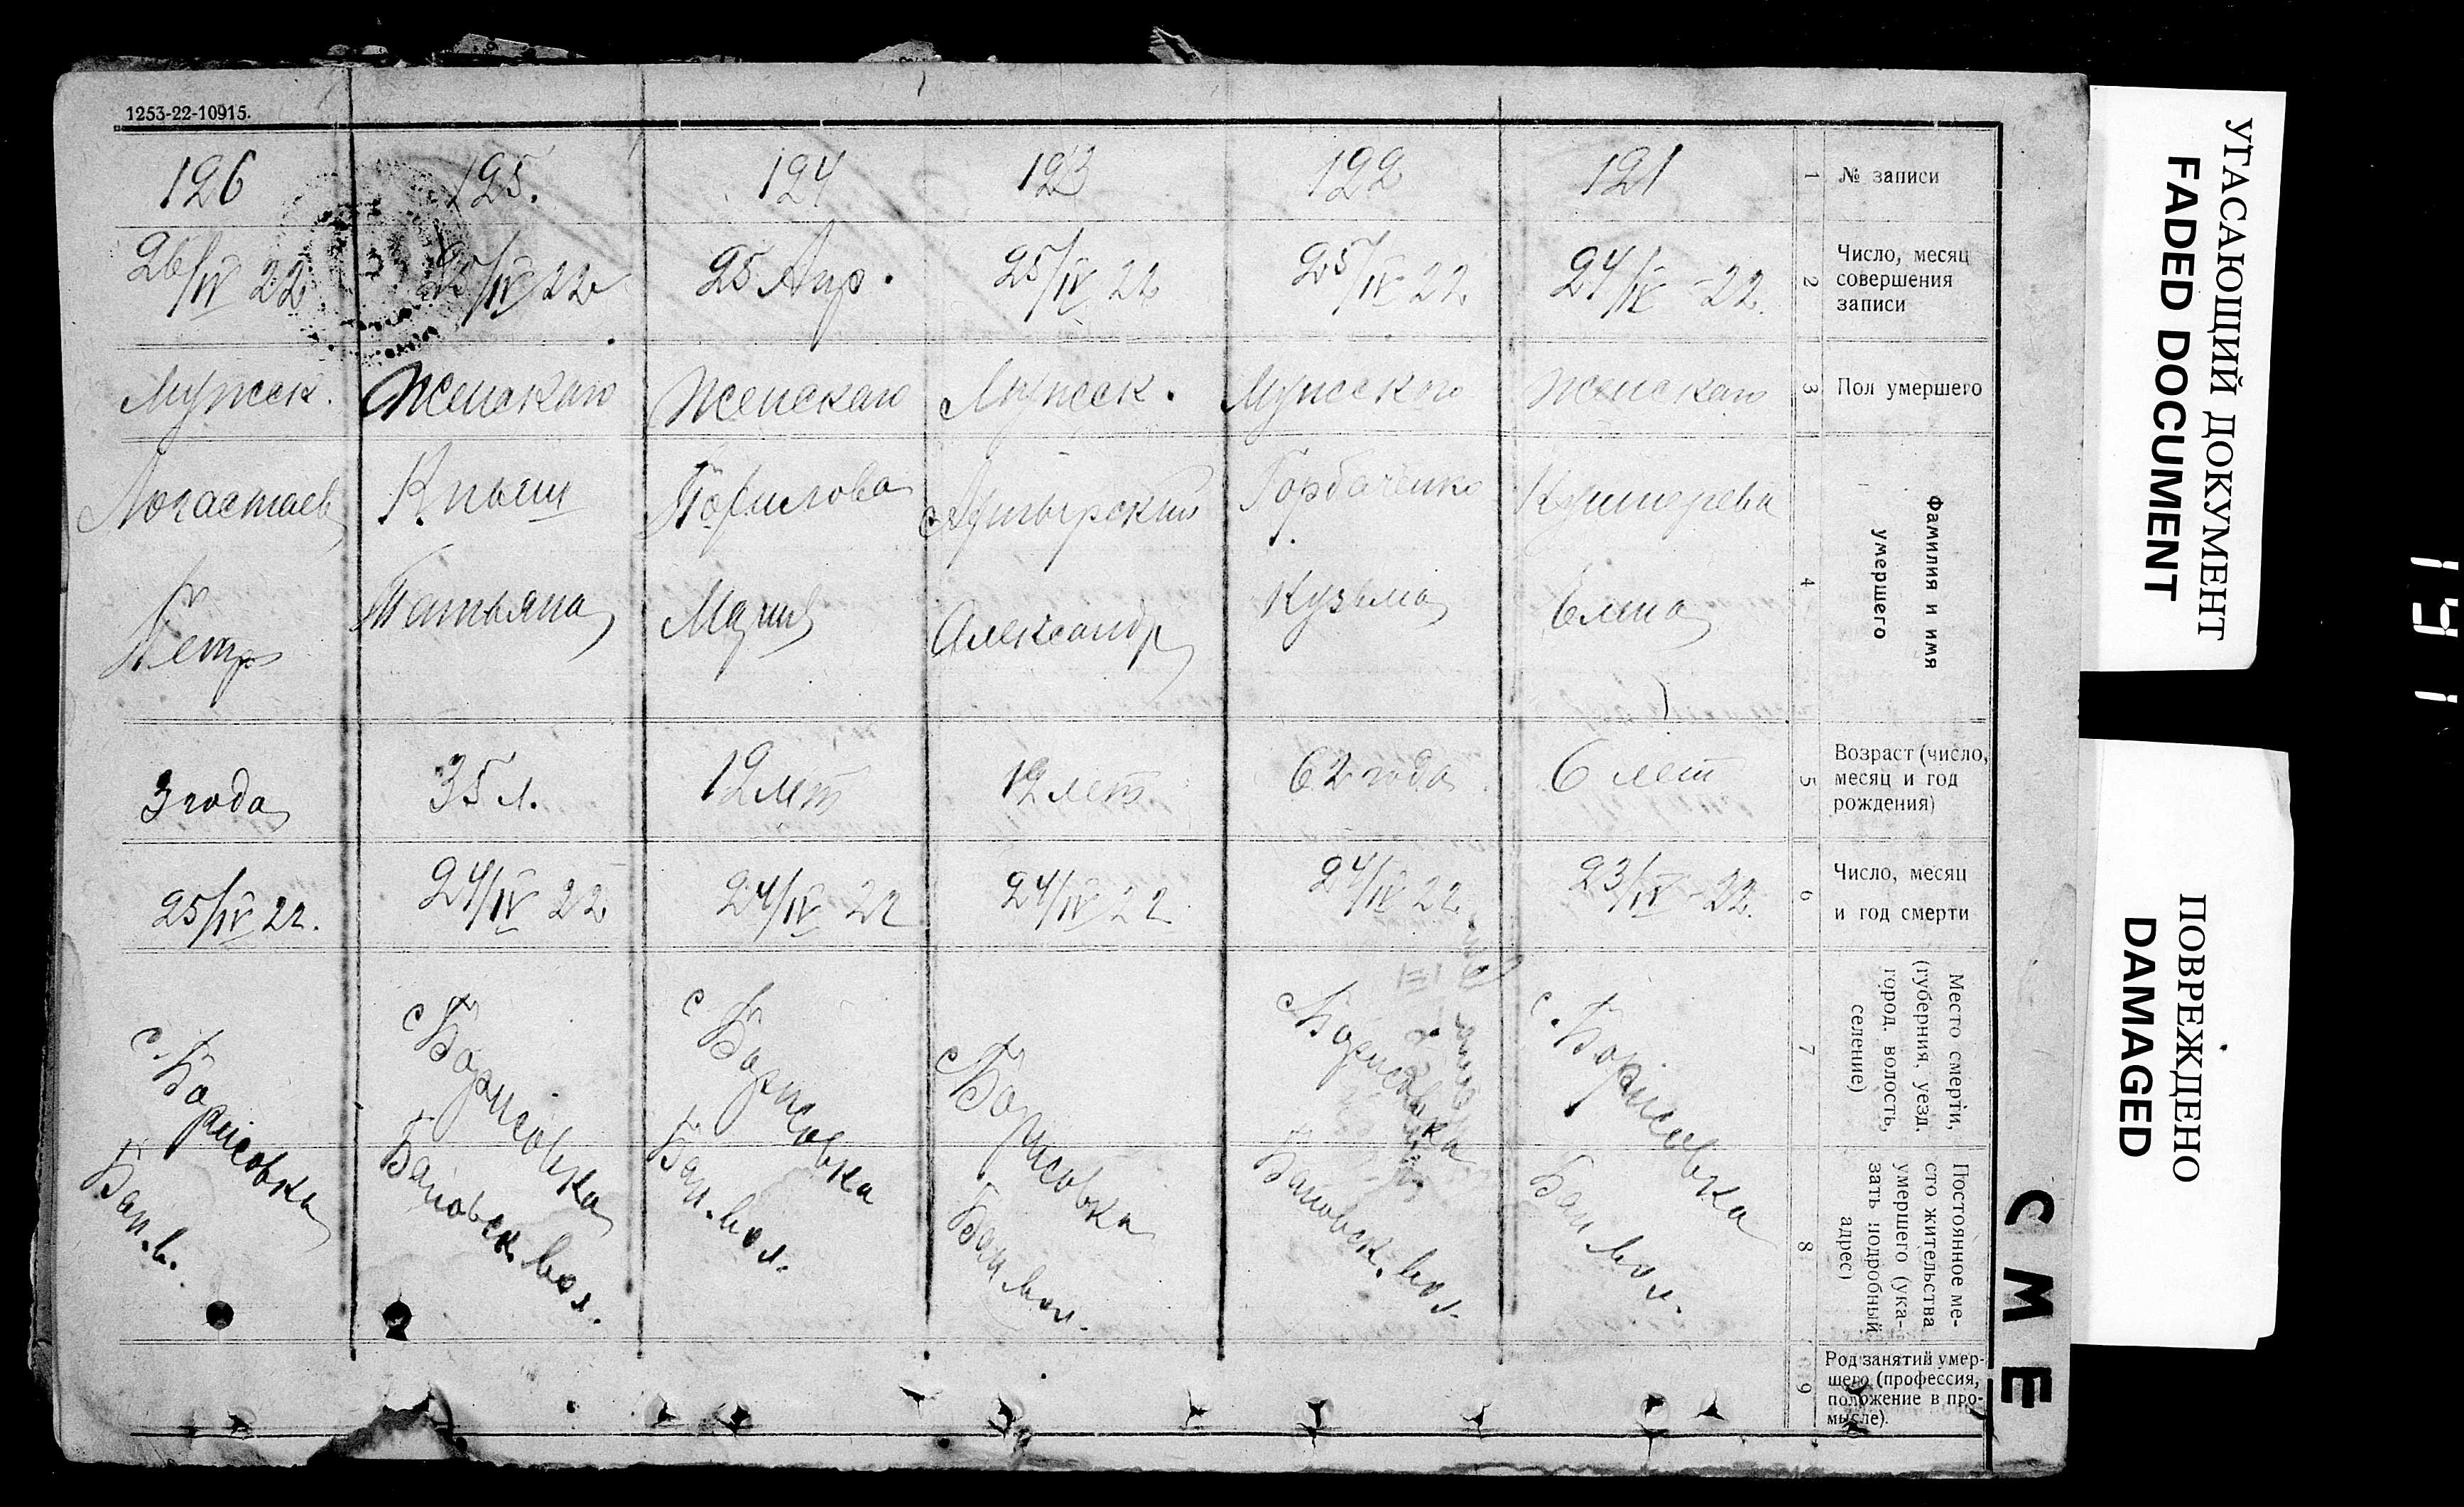 1253-22-10915.
126
125.
124
123
122
121
1
№ записи
26/IV 22
25/IV 22
25 Апр.
25/IV 22
25/IV 22
24/IV - 22.
2
Число, месяц
совершения
записи
Мужск.
Женского
Женского
Мужск.
Мужского
Женского
3
Пол умершего
Кныш
Горбаченко
Петр
Татьяна
Мария
Александр
Кузьма
Елена
4
Фамилия и имя
умершего
3 года
35 л.
12 лет
12 лет
62 года
6 лет
5
Возраст (число,
месяц и год
рождения)
25/IV 22.
24/IV 22
24/IV 22
24/IV 22
24/IV 22
23/IV - 22.
6
Число, месяц
и год смерти
с. Борисовка
Бап. в.
с Борисовка
Баповск. вол.
с Борисовка
Бап. вол.
с Борисовка
Бап вол.
с Борисовка
Баповск. вол.
с. Борисовка
Бап вол.
7
Место смерти,
(губерния, уезд,
город. волость,
селение)
8
Постоянное ме-
сто жительства
умершего (ука-
зать подробный
адрес)
9
Род занятий умер-
шего (профессия,
положение в про-
мысле).
СМЕ
УГАСАЮЩИЙ ДОКУМЕНТ
FADED DOCUMENT
ПОВРЕЖДЕНО
DAMAGED